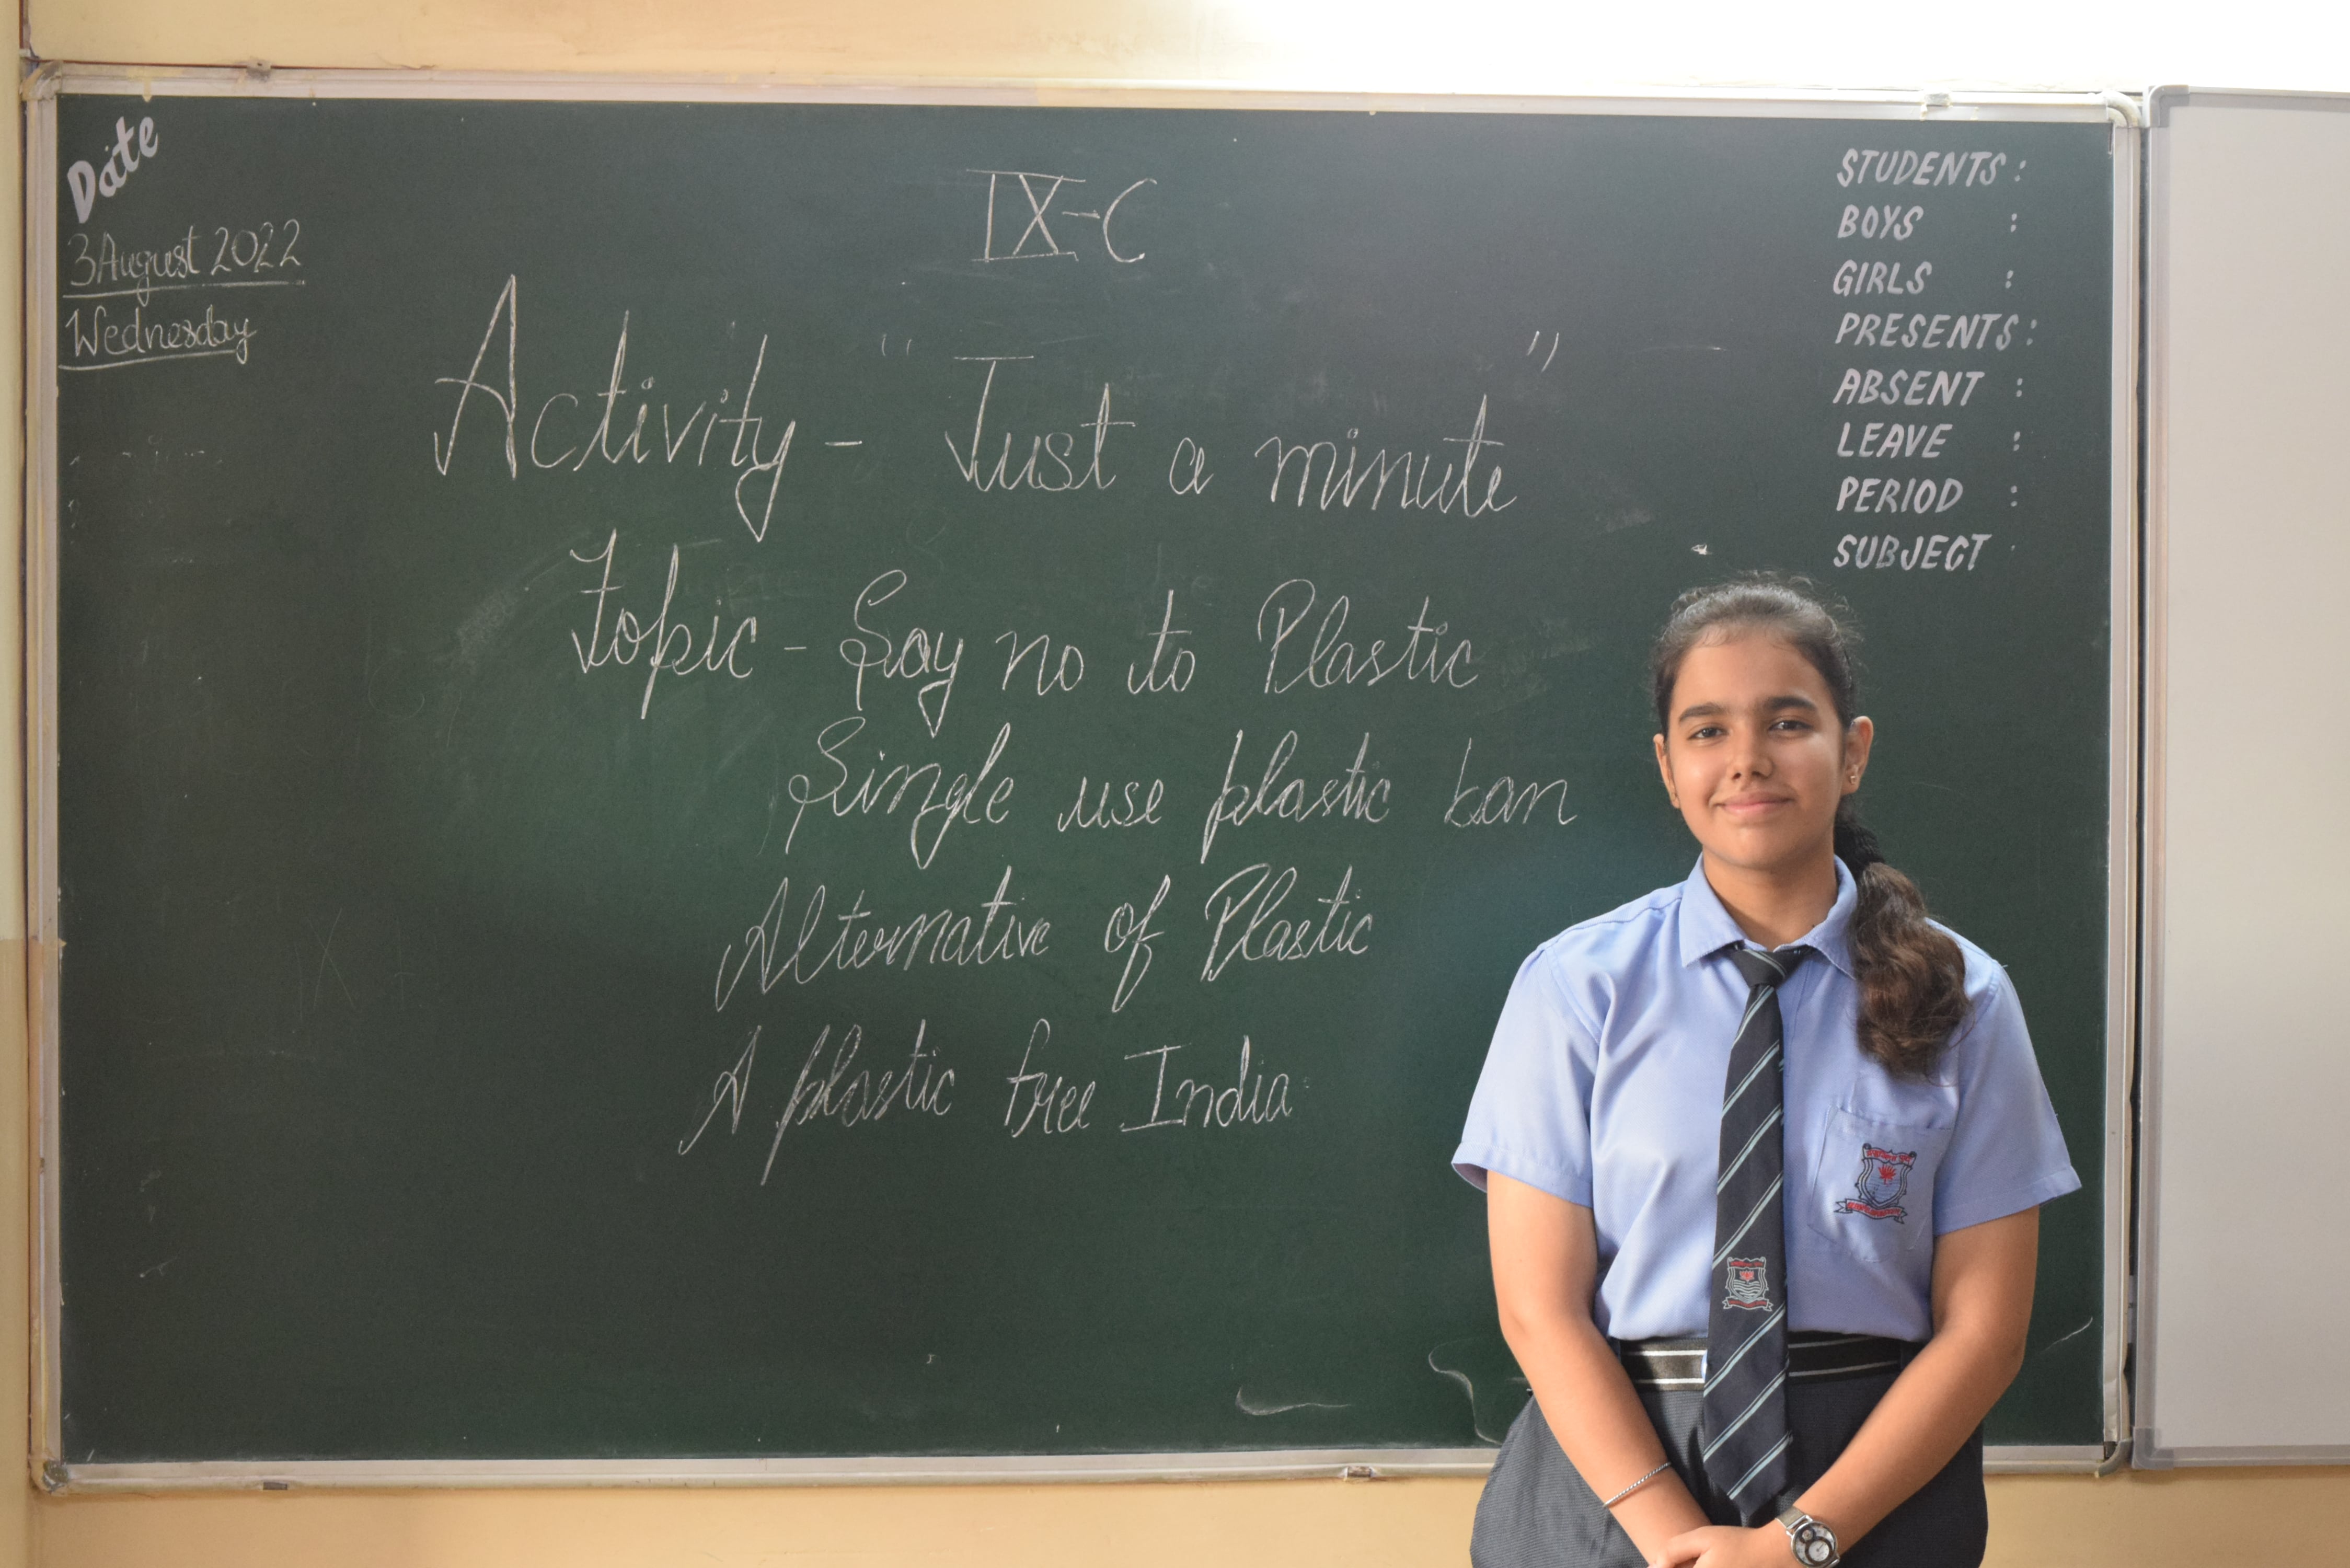 Date
3 August 2022
Wednesday
IX-C
Activity - "Just a minute"
Topic - Say no to Plastic
Single use plastic ban
Alternative of Plastic
A plastic free India
STUDENTS :
BOYS :
GIRLS :
PRESENTS :
ABSENT :
LEAVE :
PERIOD :
SUBJECT